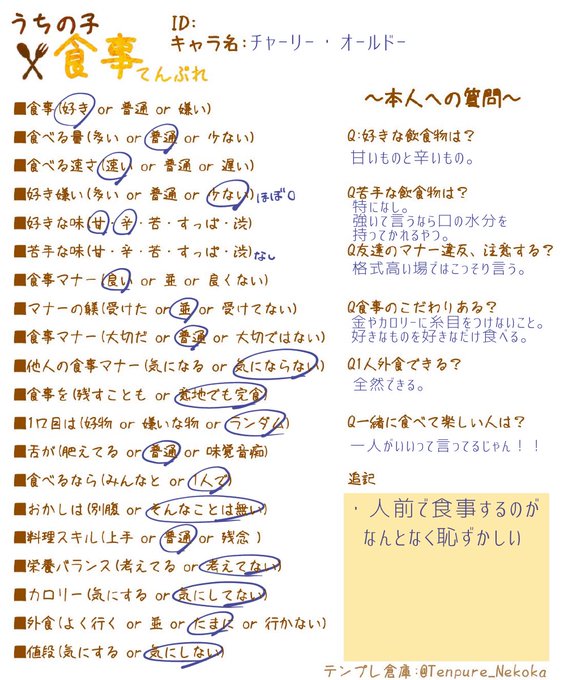 うちの子
食事てんぷれ
ID:
キャラ名:チャーリー・オールドー
■食事(好き or 普通 or 嫌い)
■食べる量(多い or 普通 or 少ない)
■食べる速さ(速い or 普通 or 遅い)
■好き嫌い(多い or 普通 or 少ない)ほぼ0
■好きな味(甘・辛・苦・すっぱ・渋)
■苦手な味(甘・辛・苦・すっぱ・渋)なし
■食事マナー(良い or 並 or 良くない)
■マナーの躾(受けた or 並 or 受けてない)
■食事マナー(大切だ or 普通 or 大切ではない)
■他人の食事マナー(気になる or 気にならない)
■食事を(残すことも or 意地でも完食)
■1口目は(好物 or 嫌いな物 or ランダム)
■舌が(肥えてる or 普通 or 味覚音痴)
■食べるなら(みんなと or 1人で)
■おかしは(別腹 or そんなことは無い)
■料理スキル(上手 or 普通 or 残念 )
■栄養バランス(考えてる or 考えてない)
■カロリー(気にする or 気にしてない)
■外食(よく行く or 並 or たまに or 行かない)
■値段(気にする or 気にしない)
〜本人への質問〜
Q:好きな飲食物は?
甘いものと辛いもの。
Q苦手な飲食物は?
特になし。
強いて言うなら口の水分を
持ってかれるやつ。
Q友達のマナー違反、注意する?
格式高い場ではこっそり言う。
Q食事のこだわりある?
金やカロリーに糸目をつけないこと。
好きなものを好きなだけ食べる。
Q1人外食できる?
全然できる。
Q一緒に食べて楽しい人は?
一人がいいって言ってるじゃん!!
追記
・人前で食事するのが
なんとなく恥ずかしい
テンプレ倉庫:@Tenpure_Nekoka